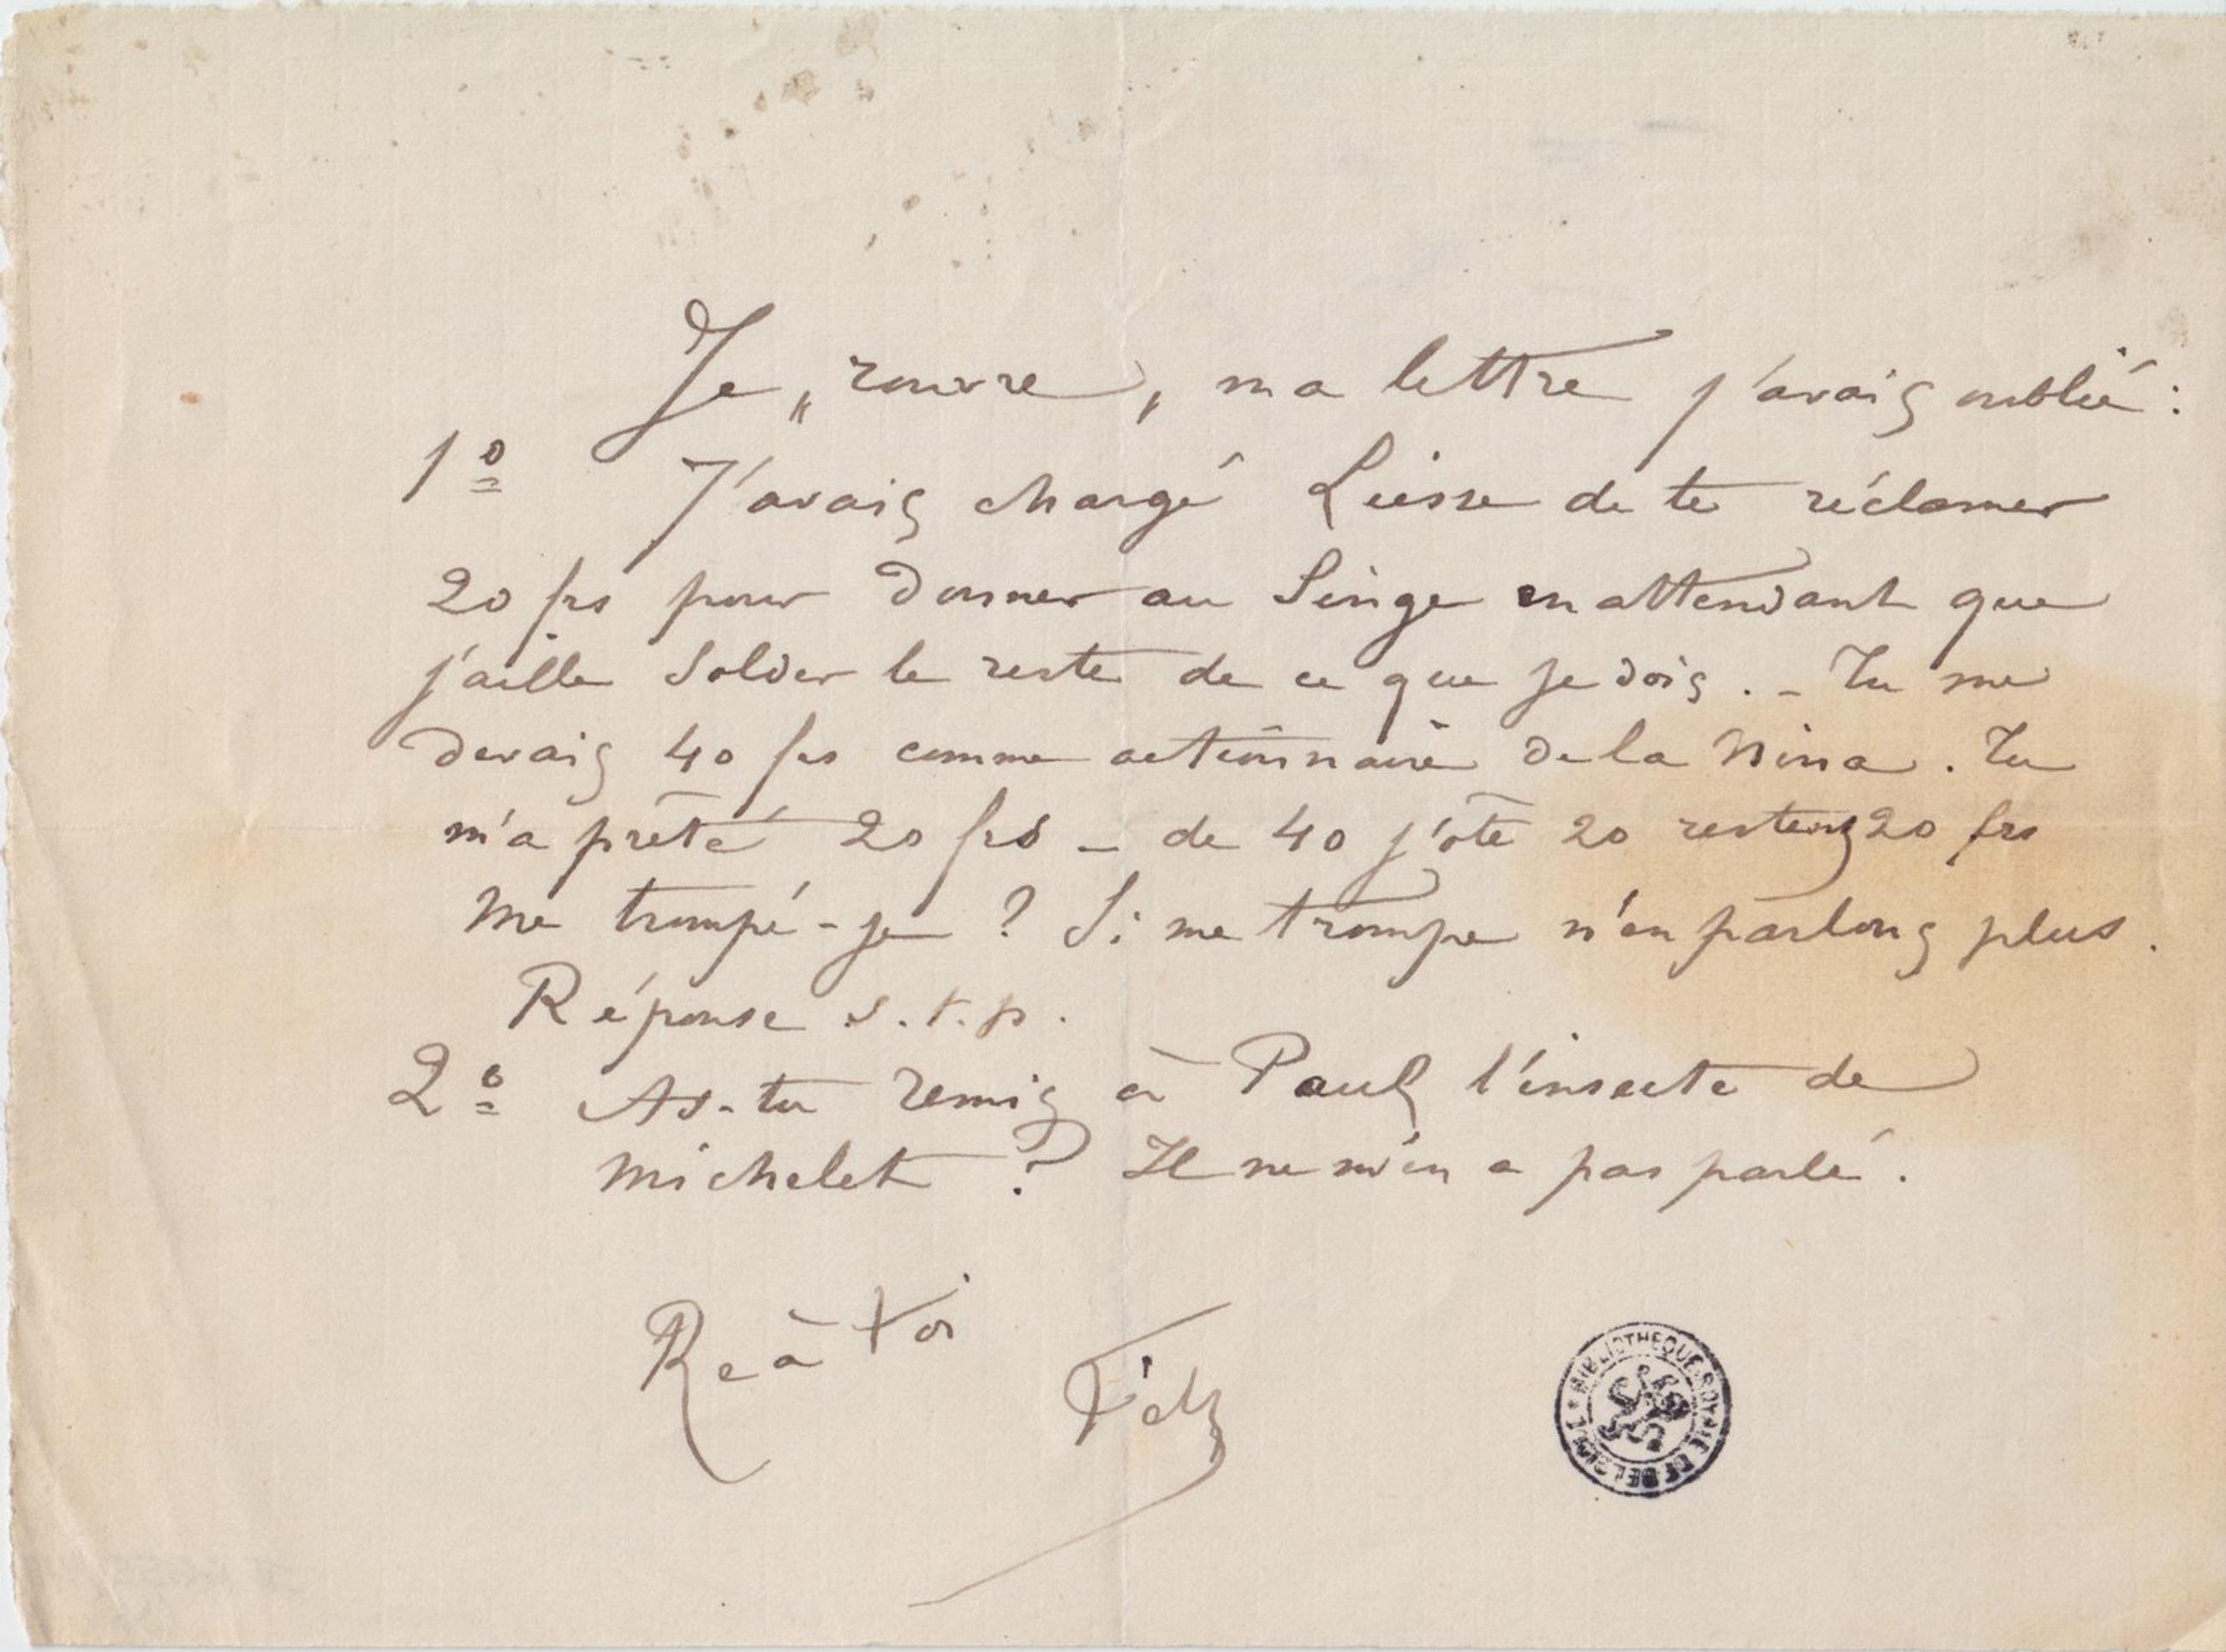 Je „rouvre, ma lettre j'avais oublié :
1º J'avais chargé Liesse de te réclamer
20 frs pour donner au Singe en attendant que
j'aille solder le reste de ce que je dois . - Tu me
devais 40 frs comme actionnaire de la Nina . Tu
m'a prêté 20 frs - de 40 j'ôte 20 restent 20 frs
me trompé-je ? Si me trompe n'en parlons plus .
Réponse s.t.p.
2º As-tu remis à Paul l'insecte de
michelet ? Il ne m'en a pas parlé .
Re à toi
BIBLIOTHEQUE ROYALE DE BELGIQUE